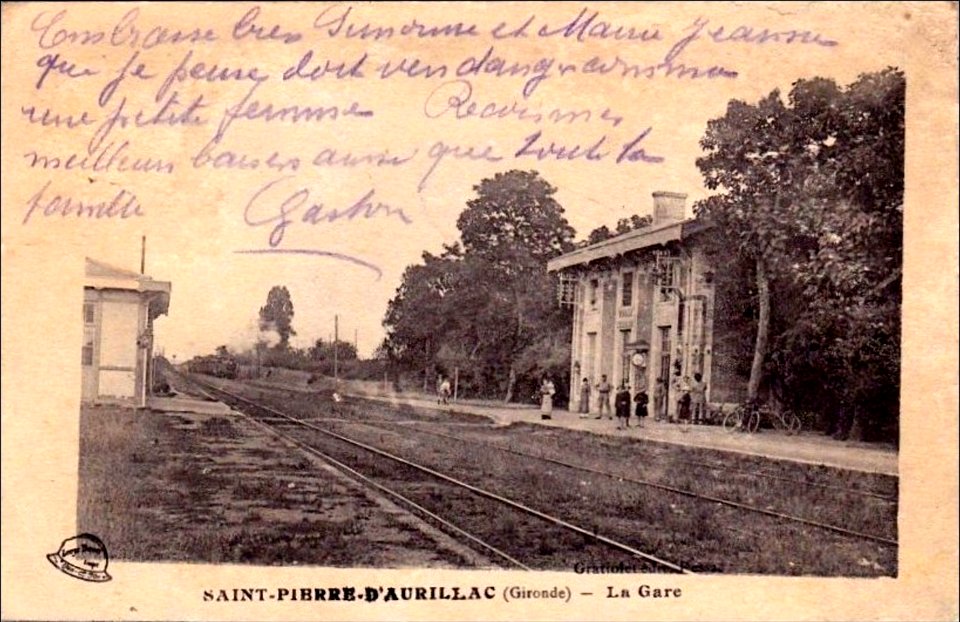 Embrasse bien Simonne et Marie Jeanne
que je pense doit vendanger comme
une petite femme Recois mes
meilleurs baisers ainsi que toute la
famille
Gaston
Gratiolet édit.
SAINT-PIERRE-D'AURILLAC (Gironde) – La Gare